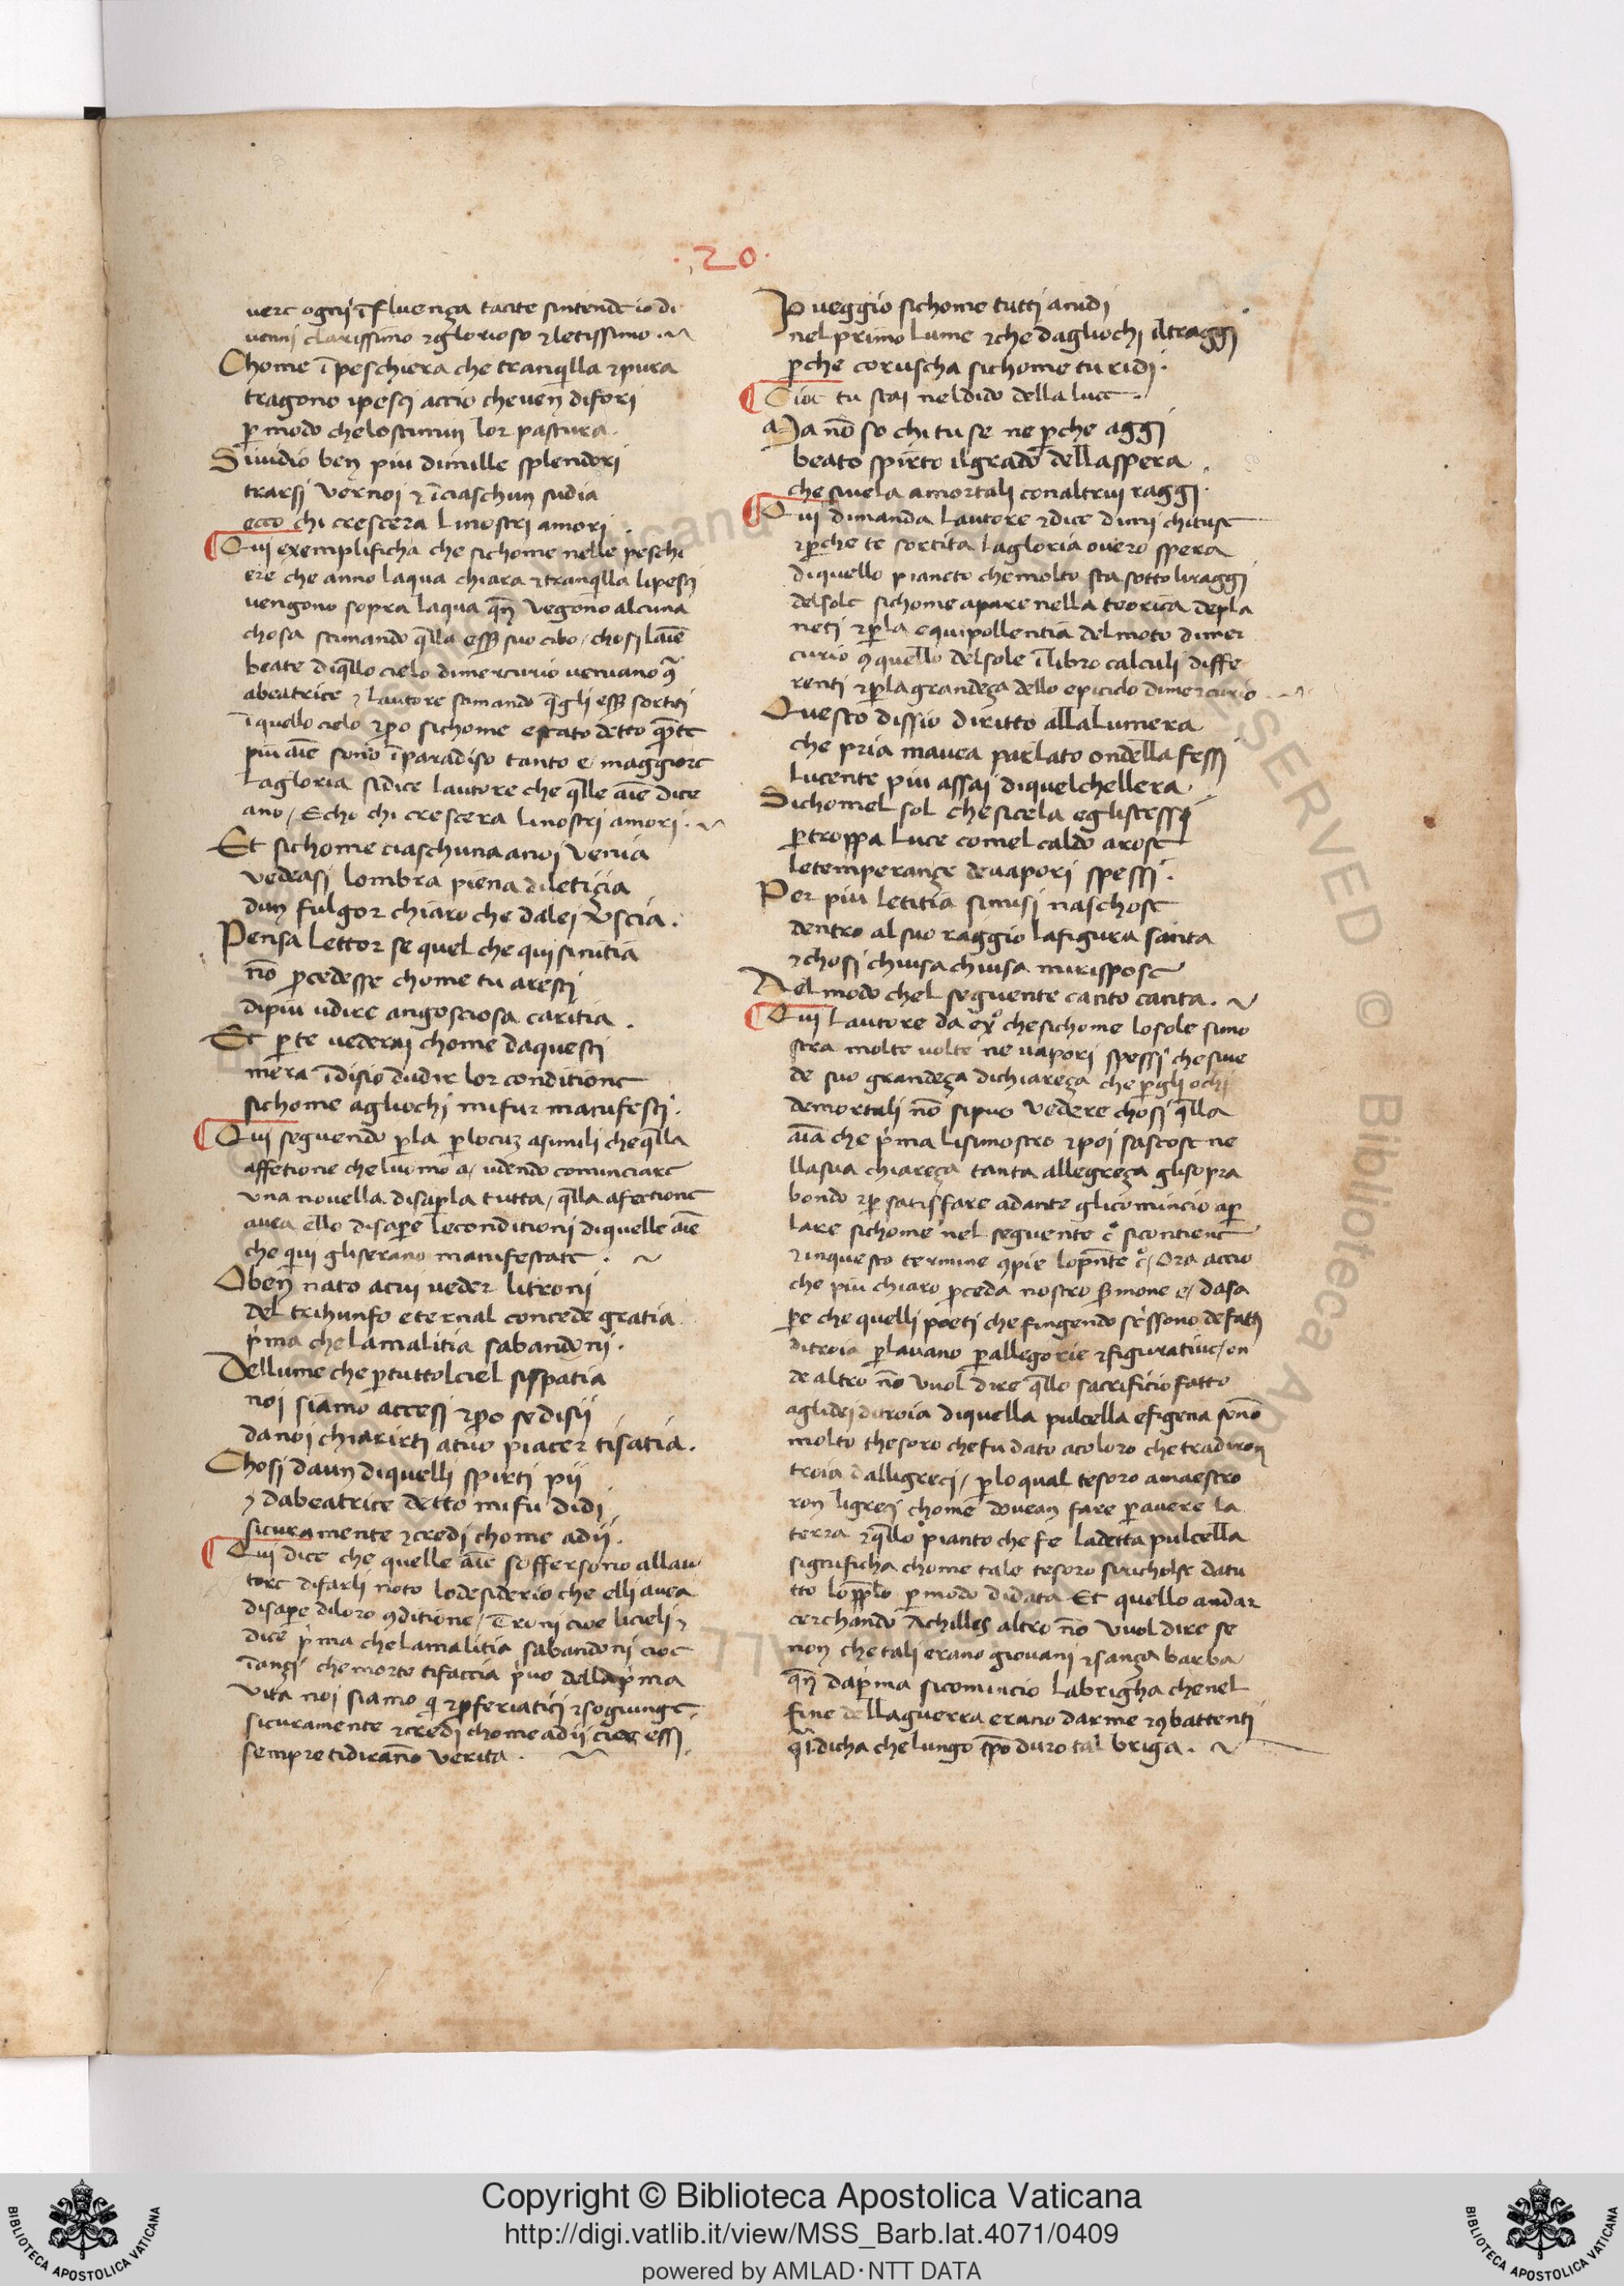 .20.
verc ogni īfluença tacite sintende io di
venni clarissimo ⁊ glorioso ⁊ letissimo.
Chome ī peschiera che tranquilla ⁊ pura
tragono ipesci accio che ven di fori
ꝑ modo che lo stimin lor pastura.
Si vidio ben piu di mille splendori
trarsi ver noi ⁊ ī ciaschun sudia
ecco chi crescera li nostri amori.
Qui exemplificha che sichome nelle peschi
ere che anno laqua chiara ⁊ tranqlla li pesci
vengono sopra laqua qn̄ vegono alcuna
chosa stimando q̄lla esse suo cibo / chosi laīe
beate di q̄llo cielo di mercurio venivano
abeatrice ⁊ lautore stimando q̄gli esse sortiti
ī quello cielo ⁊ ꝑo sichome e stato detto
piu aīe sono ī paradiso tanto e maggiorc
la gloria si dice lautore che q̄lle aīe dice
ano / Echo chi crescera li nostri amori.
Et sichome ciaschuna a noi venia
vedeasi lombra piena di letiçia
dun fulgor chiaro che da lei uscia.
Pensa lettor se quel che qui sinitia
nō ꝓcedesse chome tu aresti
di piu udire angosciosa caritia.
Et ꝑ te vederai chome da questi
mera ī disio dudir lor conditionc
sichome agliochi mi fur manifesti.
Qui seguendo
affetione che luomo a / udendo cominciarc
una novella di saꝑla tutta / q̄lla afectionc
avea ello di saꝑe le conditioni di quelle aīe
che qui gli serano manifestatc.
O ben nato a cui veder li troni
del trihunfo eternal concede gratia
p̄ma che la malitia sabandoni.
Del lume che ꝑ tutto lciel si spatia
noi siamo accesi ⁊ ꝑo se disii
da noi chiarirti a tuo piacer ti satia.
Chosi da un di quelli spirti pii
⁊ da beatrice detto mi fu di di
sicuramente ⁊ credi chome a dii.
Qui dice che quelle aīe soffersono allau
torc di farli noto lo desiderio che elli avea
di saꝑe di loro ꝯditione / Troni cioe li cieli ⁊
dice p̄ma che la malitia sabandoni cioc
īançi che morte ti faccia p̄vo della p̄ma
vita noi siamo ⁊ sogiungc
sicuramente ⁊ credi chome a dii cioe essi
sempre ti dirano verita.
Io veggio sichome tutti anidi
nel primo lume ⁊ che dagliochi il traggi
ꝑche coruscha sichome tu ridi.
Cioc tu stai nel dido della lucc.
Ma nō so chi tu se ne ꝑche aggi
beato spirto il grado della spera
che si vela a mortali con altrui raggi.
Qui dimanda lautore ⁊ dice dimi chi tusc
⁊ ꝑche te sortita la gloria overo spera
di quello pianeto che molto sta sotto li raggi
del solc sichome apare nella teorica de pla
neti ⁊ ꝑ la equipollentia del moto di mer
curio ꝯ quello del sole ī libro calculi diffe
renti ⁊ ꝑ la grandeça dello epiciclo di mercurio
Questo dissio diritto alla lumera
che pria mavea parlato ondella fessi
lucente piu assai di quel chellera.
Sichomel sol che si cela egli stessi
ꝑ troppa luce comel caldo a rosc
le temperançe de vapori spessi.
Per piu letitia si misi naschosc
dentro al suo raggio la figura santa
⁊ chosi chiusa chiusa mi risposc
Nel modo chel seguente canto canta.
Qui lautore da exº che sichome lo sole si mo
stra molte volte ne vapori spessi che si ve
de suo grandeça di chiareça che ꝑ gli ochi
de mortali nō si puo vedere chosi q̄lla
aīa che p̄ma li si mostro ⁊ poi sascosc ne
lla sua chiareça tanta allegreça gli sopra
bondo ⁊ ꝑ satisfare a dante gli comincio a ꝑ
lare sichome nel seguente cº si contienc
⁊ in questo termine ꝯpie lo pn̄te cº / Ora accio
che piu chiaro ꝓceda nostro sermone e da sa
ꝑe che quelli poeti che fingendo scrissono de fatti
di troia ꝑlavano ꝑ allegorie ⁊ figurativc / on
de altro nō vuol dire q̄llo sacrificio fatto
agli dei di troia di quella pulcella efigena sono
molto thesoro che fu dato a coloro che tradiron
troia dalli greci / ꝑ lo qual tesoro amaestro
ron li greci chome dovean fare ꝑ avere la
terra ⁊ q̄llo pianto che fe la detta pulcella
significha chome tale tesoro si richolse da tu
tto lo pplo ꝑ modo di data Et quello andar
cerchando Achilles altro nō vuol dire se
non che tali erano giovani ⁊ sança barba
qn̄ da p̄ma si comincio la brigha che nel
fine della guerra erano darme ⁊ ꝯbattenti
q̄i dicha che lungo tp̄o duro tal briga.
Copyright © Biblioteca Apostolica Vaticana
http://digi.vatlib.it/view/MSS_Barb.lat.4071/0409
powered by AMLAD·NTT DATA
BIBLIOTECA APOSTOLICA VATICANA
BIBLIOTECA APOSTOLICA VATICANA